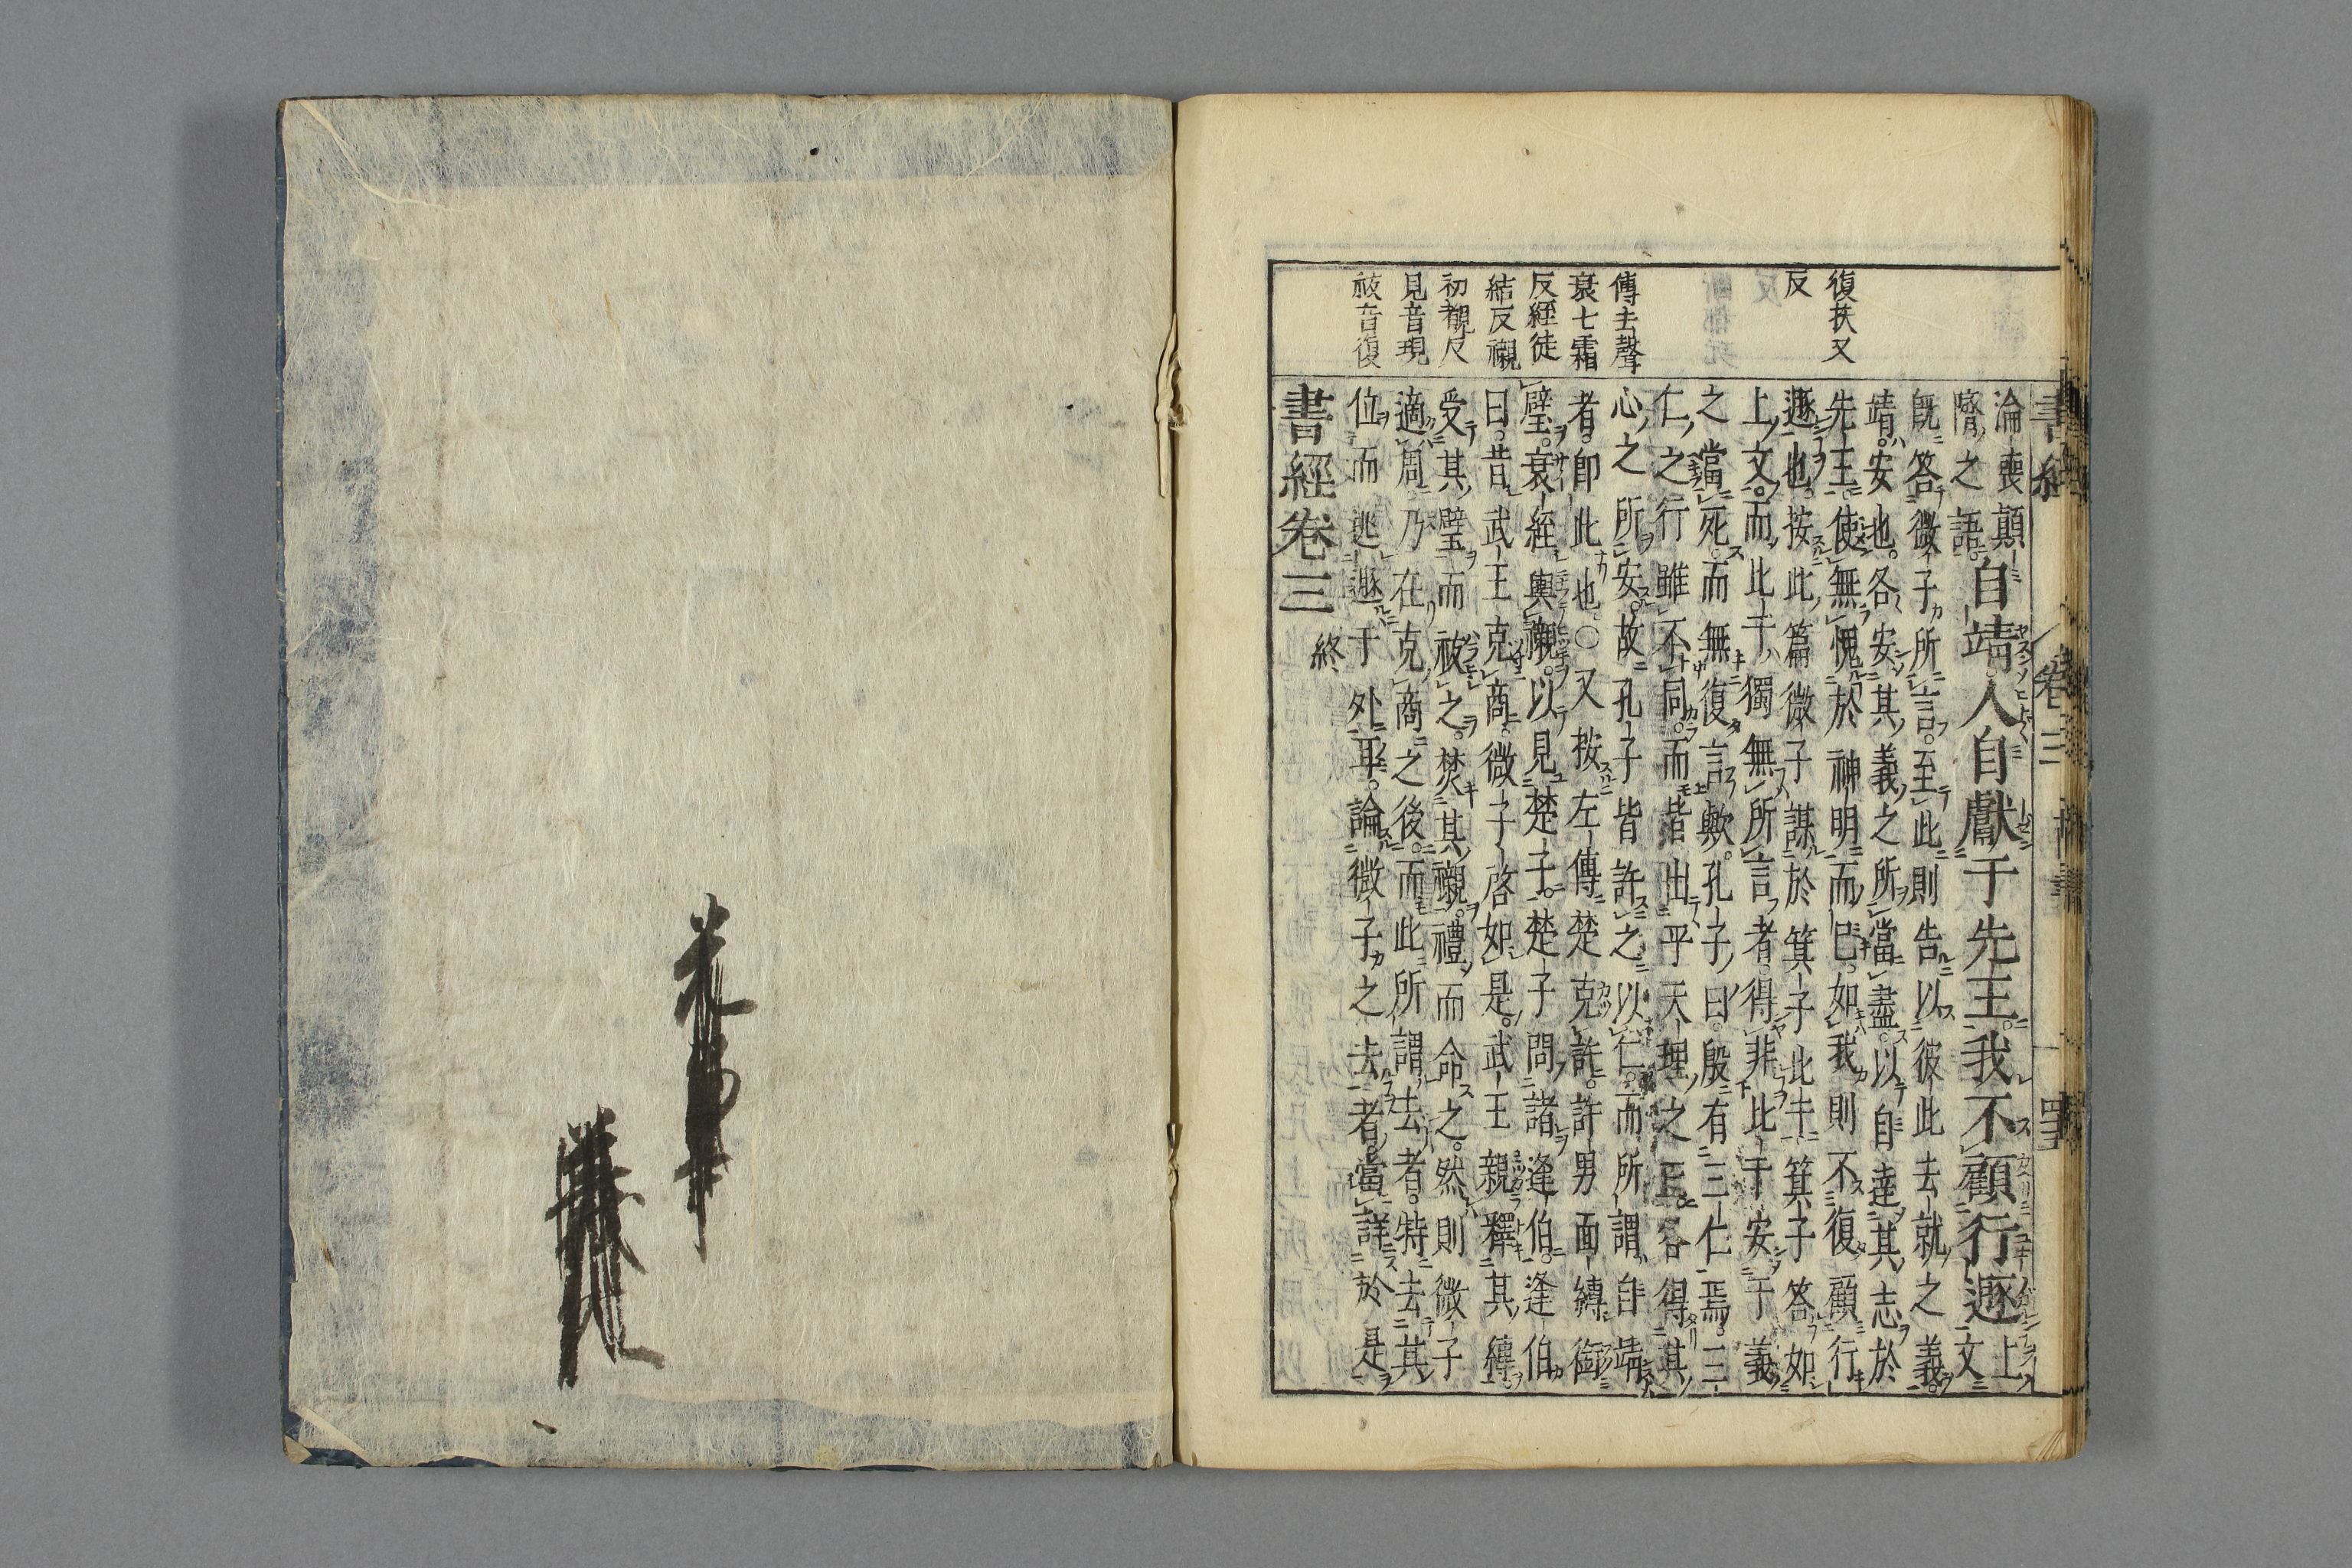 復扶又
反
傳去聲
衰七霜
反絰徒
結反襯
初覲反
見音現
祓音復
淪喪顛
隮之語自靖人自獻于先王我不顧行遯上文
旣答微子所言至此則告以彼此去就之義
靖安也各安其義之所當盡以自達其志於
先王使無愧於神明而已如我則不復顧行
遯也按此篇微子謀於箕子比干箕子答如
上文而比干獨無所言者得非比干安于義
之當死而無復言歟孔子曰殷有三仁焉三
仁之行雖不同而皆出乎天理之正各得其
心之所安故孔子皆許之以仁而所謂自靖
者卽此也〇又按左傳楚克許許男面縛銜
璧衰絰輿襯以見楚子楚子問諸逢伯逢伯
曰昔武王克商微子啓如是武王親釋其縛
受其璧而祓之焚其襯禮而命之然則微子
適周乃在克商之後而此所謂去者特去其
位而逃遯于外耳論微子之去者當詳於是
書經卷三
終
書經
卷三